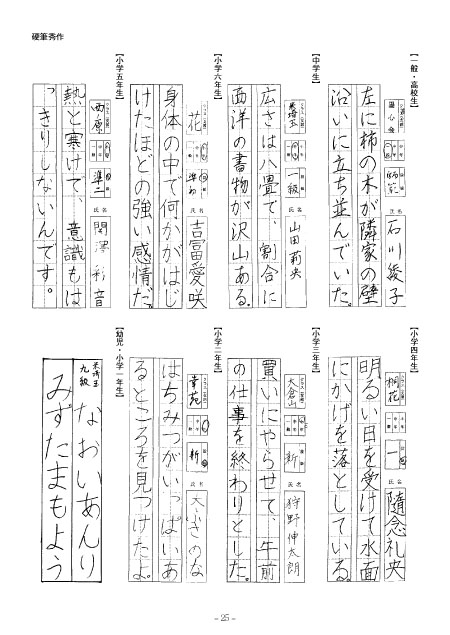 硬筆秀作
【一般・高校生】
左に柿の木が隣家の壁
沿いに立ち並んでいた。
石川綾子
【中学生】
広さは八畳で、割合に
西洋の書物が沢山ある。
一級
山田莉央
【小学六年生】
身体の中で何かがはじ
けたほどの強い感情だ。
花
吉冨愛咲
【小学五年生】
熱と寒けで、意識もは
っきりしないんです。
西原
準二
関澤彩音
【小学四年生】
明るい日を受けて水面
にかげを落としている。
桐花
一
随念礼央
【小学三年生】
買いにやらせて、午前
の仕事を終わりとした。
大倉山
新
狩野伸太朗
【小学二年生】
はちみつがいっぱいあ
るところを見つけたよ。
新
【幼児・小学一年生】
みずたまもよう
九級
なおいあんり
- 25 -